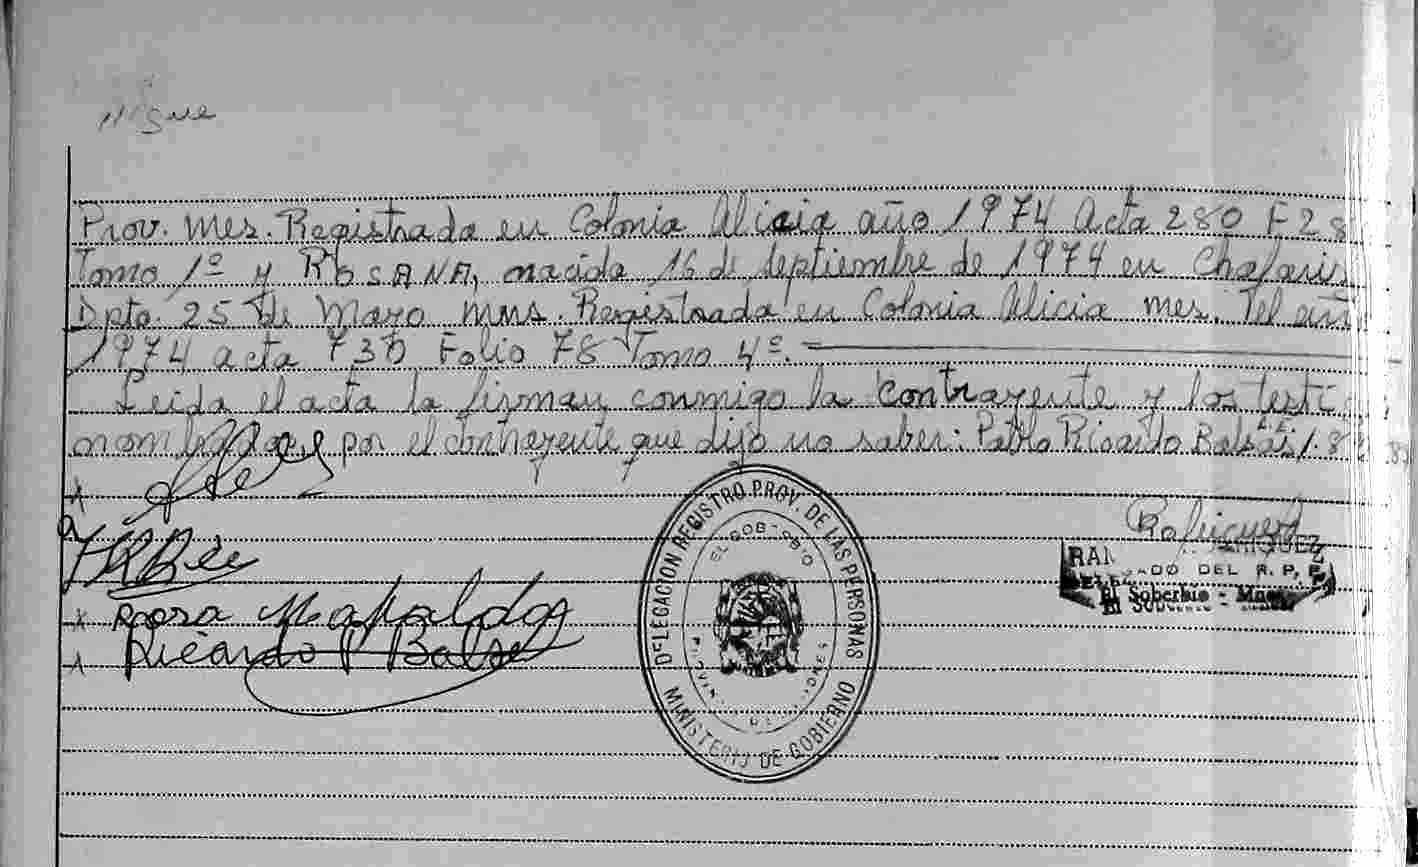 Prov. Mes. Registrada en Colonia Alicia año 1974 Acta 280 F 28
Tomo 1º y ROSANA, nacida 16 de septiembre de 1974 en Chafaris
Dpto. 25 de Mayo Mnes. Registrada en Colonia Alicia Mes. Del añ
1974 acta 735 Folio 78 Tomo 4º.
Leida el acta la firman conmigo la contrayente y los testi
por el contrayente que dijo no saber: Pablo Ricardo Balsas
Rosa
Ricardo P Balse
DELEGACION REGISTRO PROV. DE LAS PERSONAS
EL SOBERBIO
PROVINCIA DE MISIONES
MINISTERIO DE GOBIERNO
DEL R. P. P.
El Soberbio - Mnes